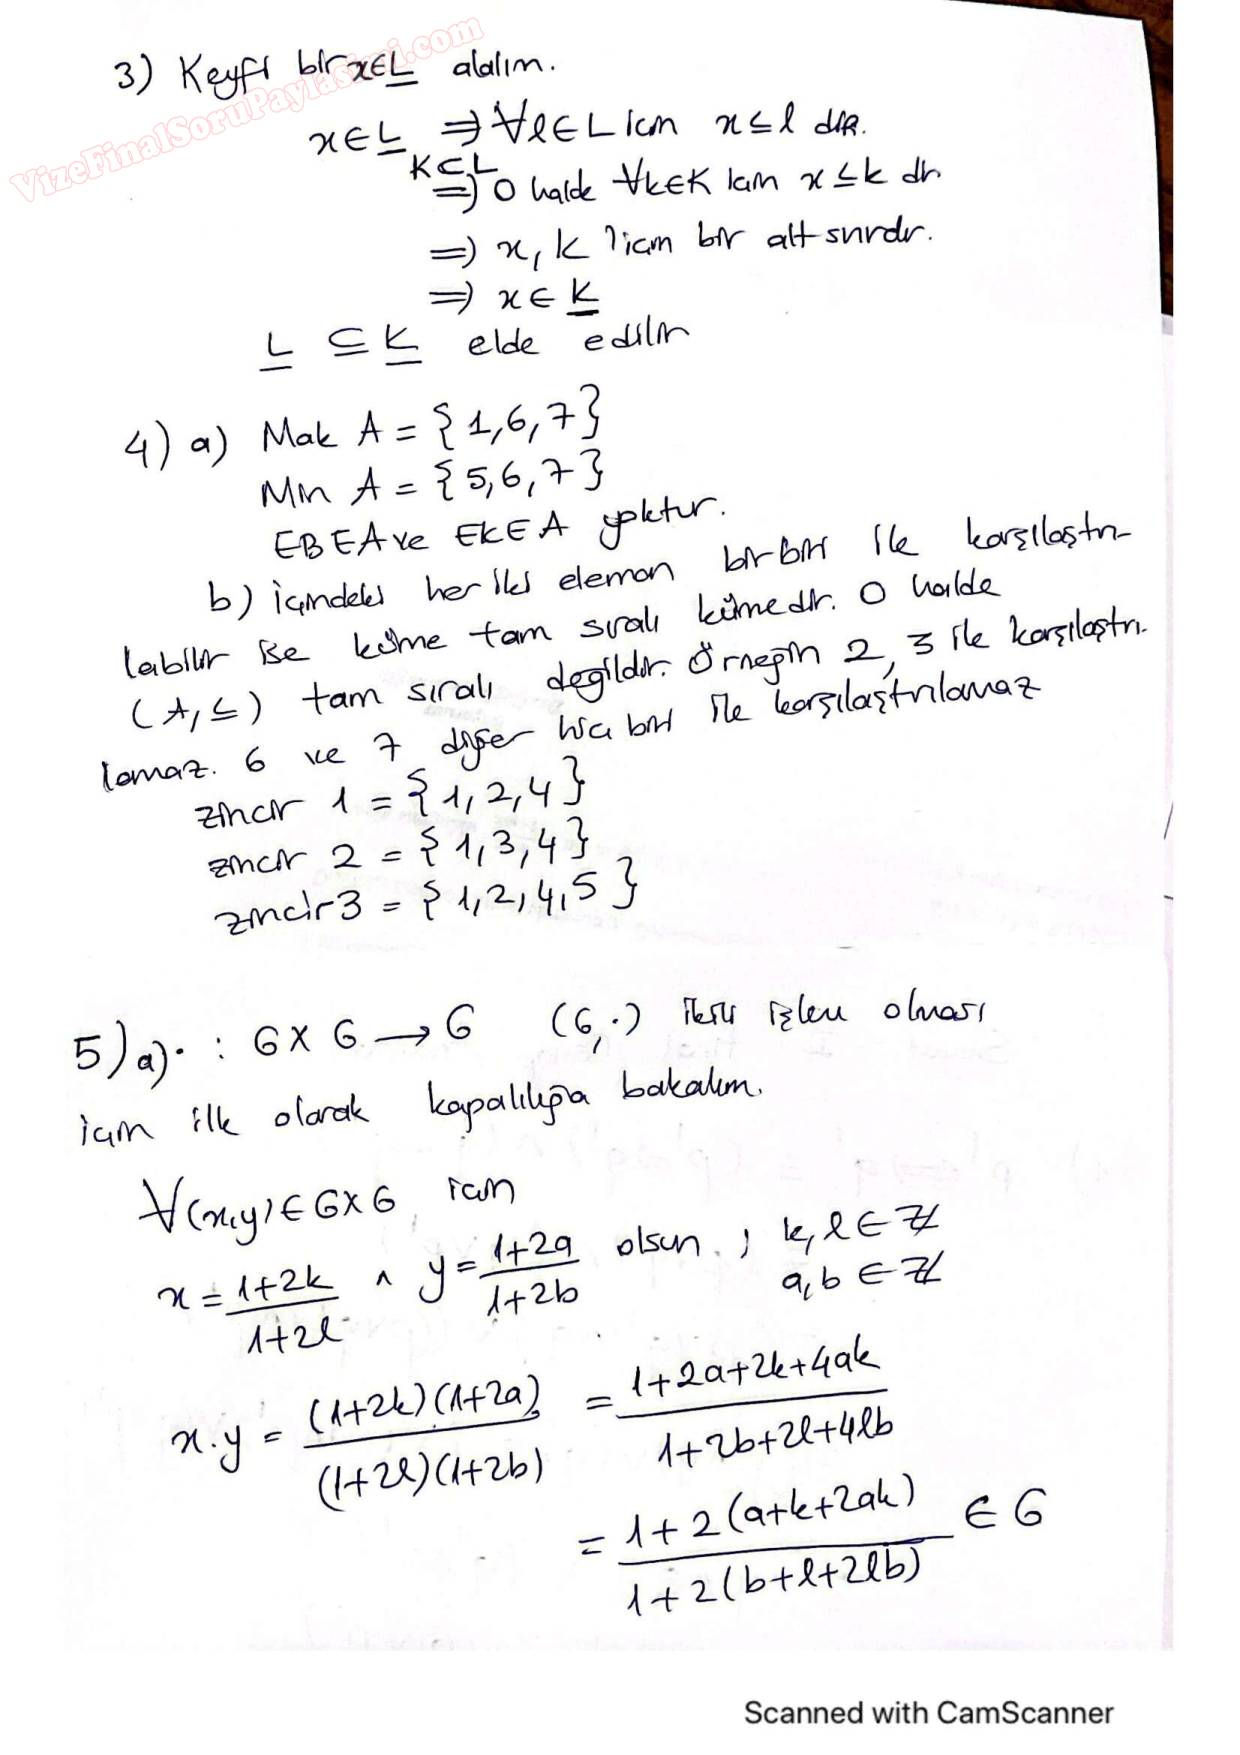 VizeFinalSoruPaylasimi.com
3) Keyfi bir x∈L̲ alalım.
x∈L̲ ⇒ ∀l∈L icin x≤l dir.
K⊂L
⇒ O halde ∀k∈K icin x≤k dır
⇒ x, K için bir alt sınırdır.
⇒ x∈K̲
L̲ ⊆ K̲ elde edilir
4) a) Mak A = {1,6,7}
Min A = {5,6,7}
EBEA ve EKEA yoktur.
b) içindeki her iki eleman birbiri ile karşılaştırı-
labilir ise küme tam sıralı kümedir. O halde
(A,≤) tam sıralı değildir. Örneğin 2, 3 ile karşılaştırı.
lamaz. 6 ve 7 diğer hiç biri ile karşılaştırılamaz
zincir 1 = {1,2,4}
zincir 2 = {1,3,4}
zincir 3 = {1,2,4,5}
5) a) · : G x G → G (G,·) ikili işlem olması
için ilk olarak kapalılığa bakalım.
∀(x,y)∈G×G icin
x = 1+2k / 1+2l ∧ y = 1+2a / 1+2b olsun. ; k, l ∈ Z
a, b ∈ Z
x.y = (1+2k)(1+2a) / (1+2l)(1+2b) = 1+2a+2k+4ak / 1+2b+2l+4lb
= 1+2(a+k+2ak) / 1+2(b+l+2lb) ∈ G
Scanned with CamScanner